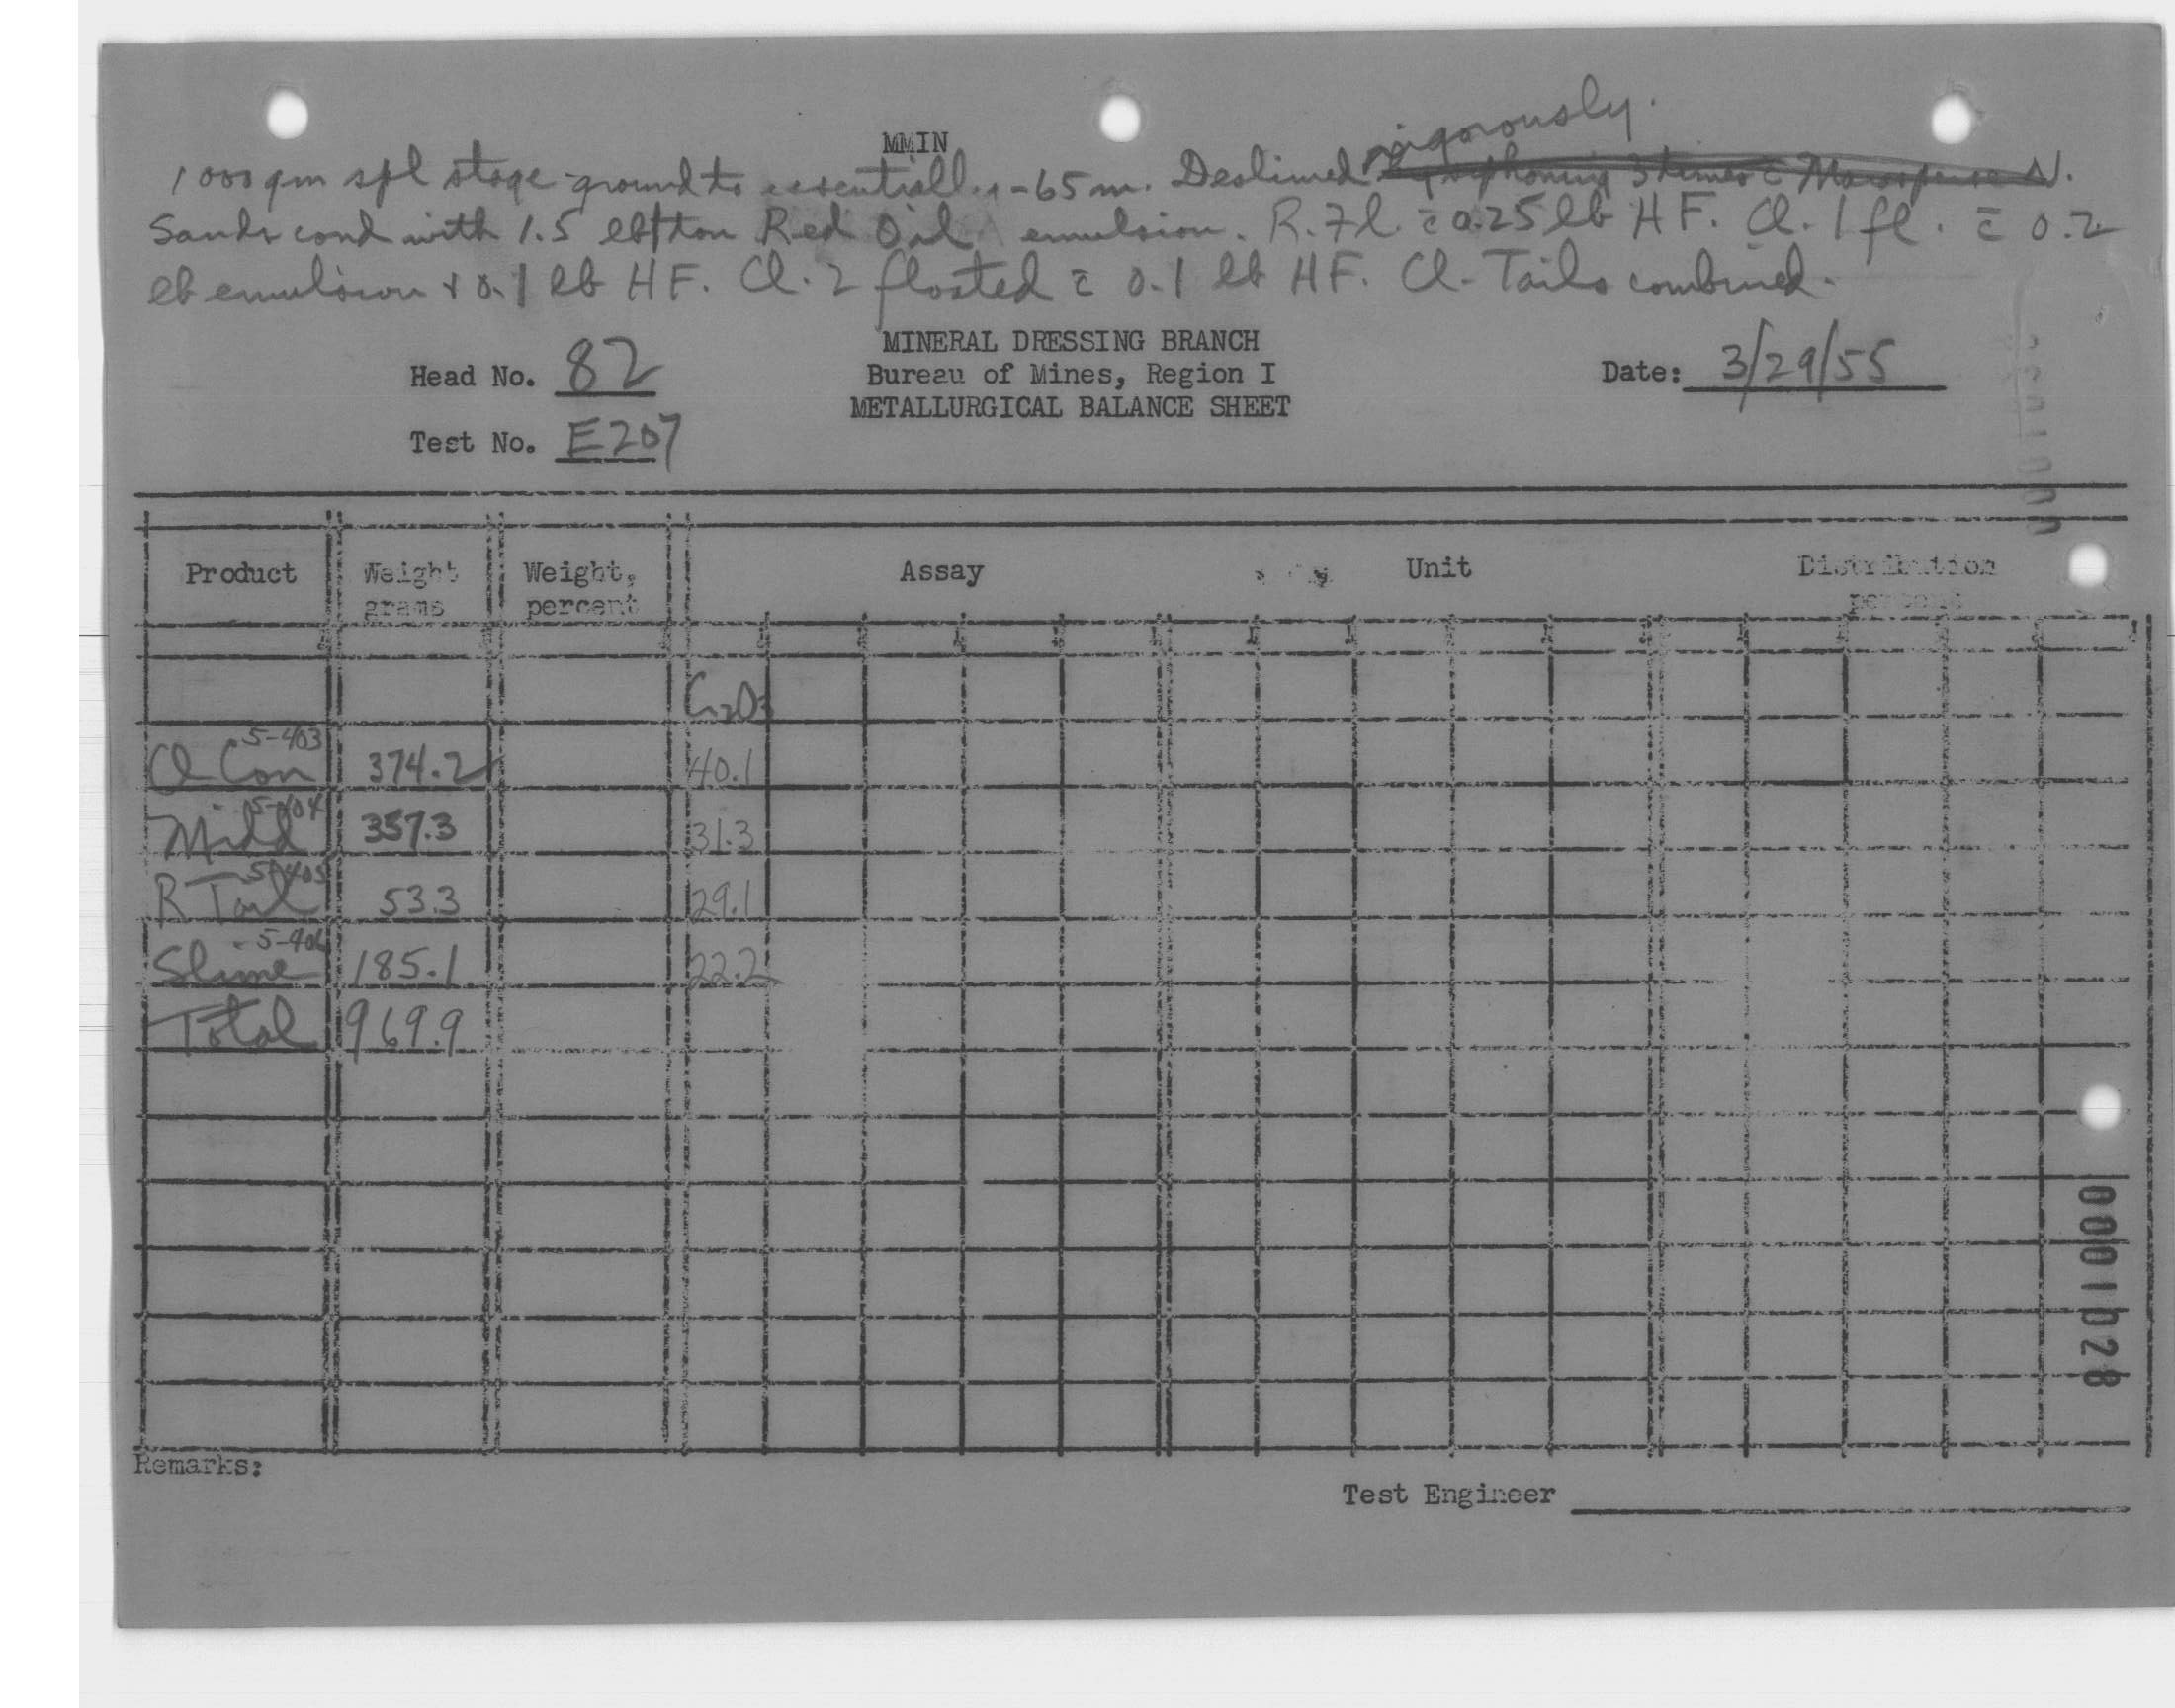 MMIN
rigorously.
1000 gm spl stage-ground to essentially -65 m. Deslimed by syphoning 3 times c̄ Marasperse N.
Sands cond with 1.5 lb/ton Red Oil emulsion. R. Fl. c̄ 0.25 lb HF. Cl. 1 fl. c̄ 0.2
lb emulsion + 0.1 lb HF. Cl. 2 floated c̄ 0.1 lb HF. Cl. Tails combined.
MINERAL DRESSING BRANCH
Head No. 82 Bureau of Mines, Region I Date: 3/29/55
METALLURGICAL BALANCE SHEET
Test No. E207
Product Weight grams Weight, percent Assay Unit Distribution percent
Cr2O3
Cl Con 5-403 374.2 40.1
Midd 5-404 357.3 31.3
R Tail 5-405 53.3 29.1
Slime 5-406 185.1 22.2
Total 969.9
0001028
Remarks:
Test Engineer